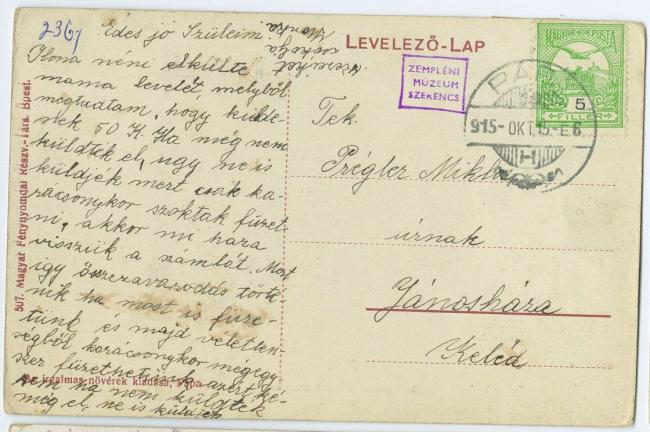 2367
Édes jó Szüleim!
Ilona néni elküldte
mama levelét melyből
megtudtam, hogy külde-
nek 50 K. Ha még nem
küldték el, ugy ne is
küldjék mert csak ka-
rácsonykor szoktak fizet-
ni, akkor mi haza
visszük a számlát. Most
igy összezavarodás törté-
nik ha most is fize-
tünk és majd véletlen-
ségből karácsonykor mégegy-
szer fizethetünk azért ké-
rem ha nem küldték
még el, ne is küldjék
szeretjük
csókolja
LEVELEZŐ-LAP
ZEMPLÉNI
MÚZEUM
SZERENCS
MAGYAR KIR. POSTA
5
FILLÉR
PÁPA
915-OKT.15.-E6
Tek.
Prégler Miklós
úrnak
Jánosháza
Keléd
507. Magyar Fénynyomdai Részv.-Társ. Bpest.
Az irgalmas növérek kiadása, Pápa